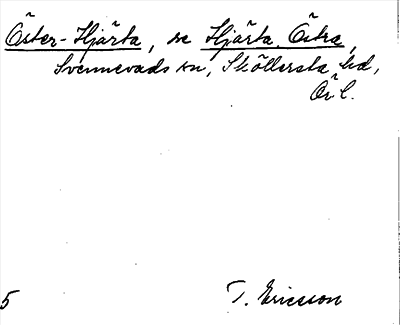 Öster-Hjärta, se Hjärta, Östra,
Svennevads sn, Sköllersta hd,
Ör l.
5
T. Ericsson